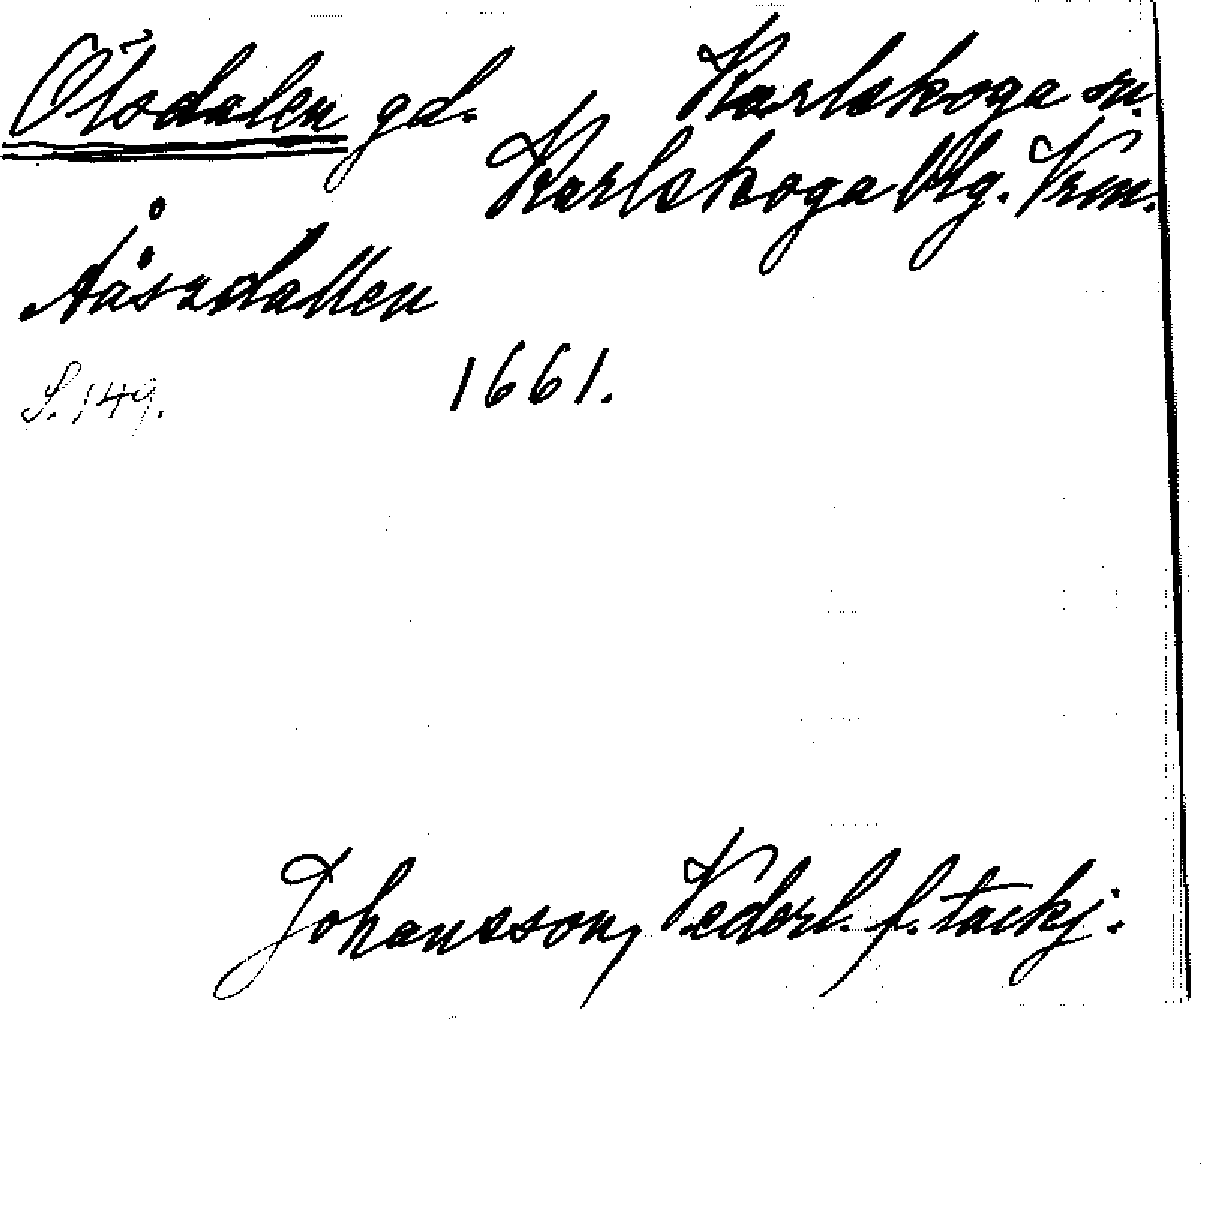 Olsdalen gd. Karlskoga sn.
Karlskoga blg. Vrm.
Åaszdallen
S. 149. 1661.
Johansson, Vedorl. f. tackj.